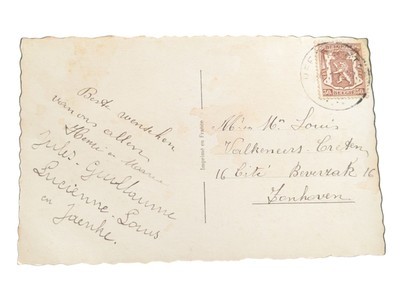 Beste wenschen
van ons allen
Henri en Maria
Jules. Guillaume
Lucienne. Louis
en Jaenke.
Imprimé en France
M en Mr Louis
Valkeneurs. Creten
16 Cité Beverzak 16
Zonhoven
50 50